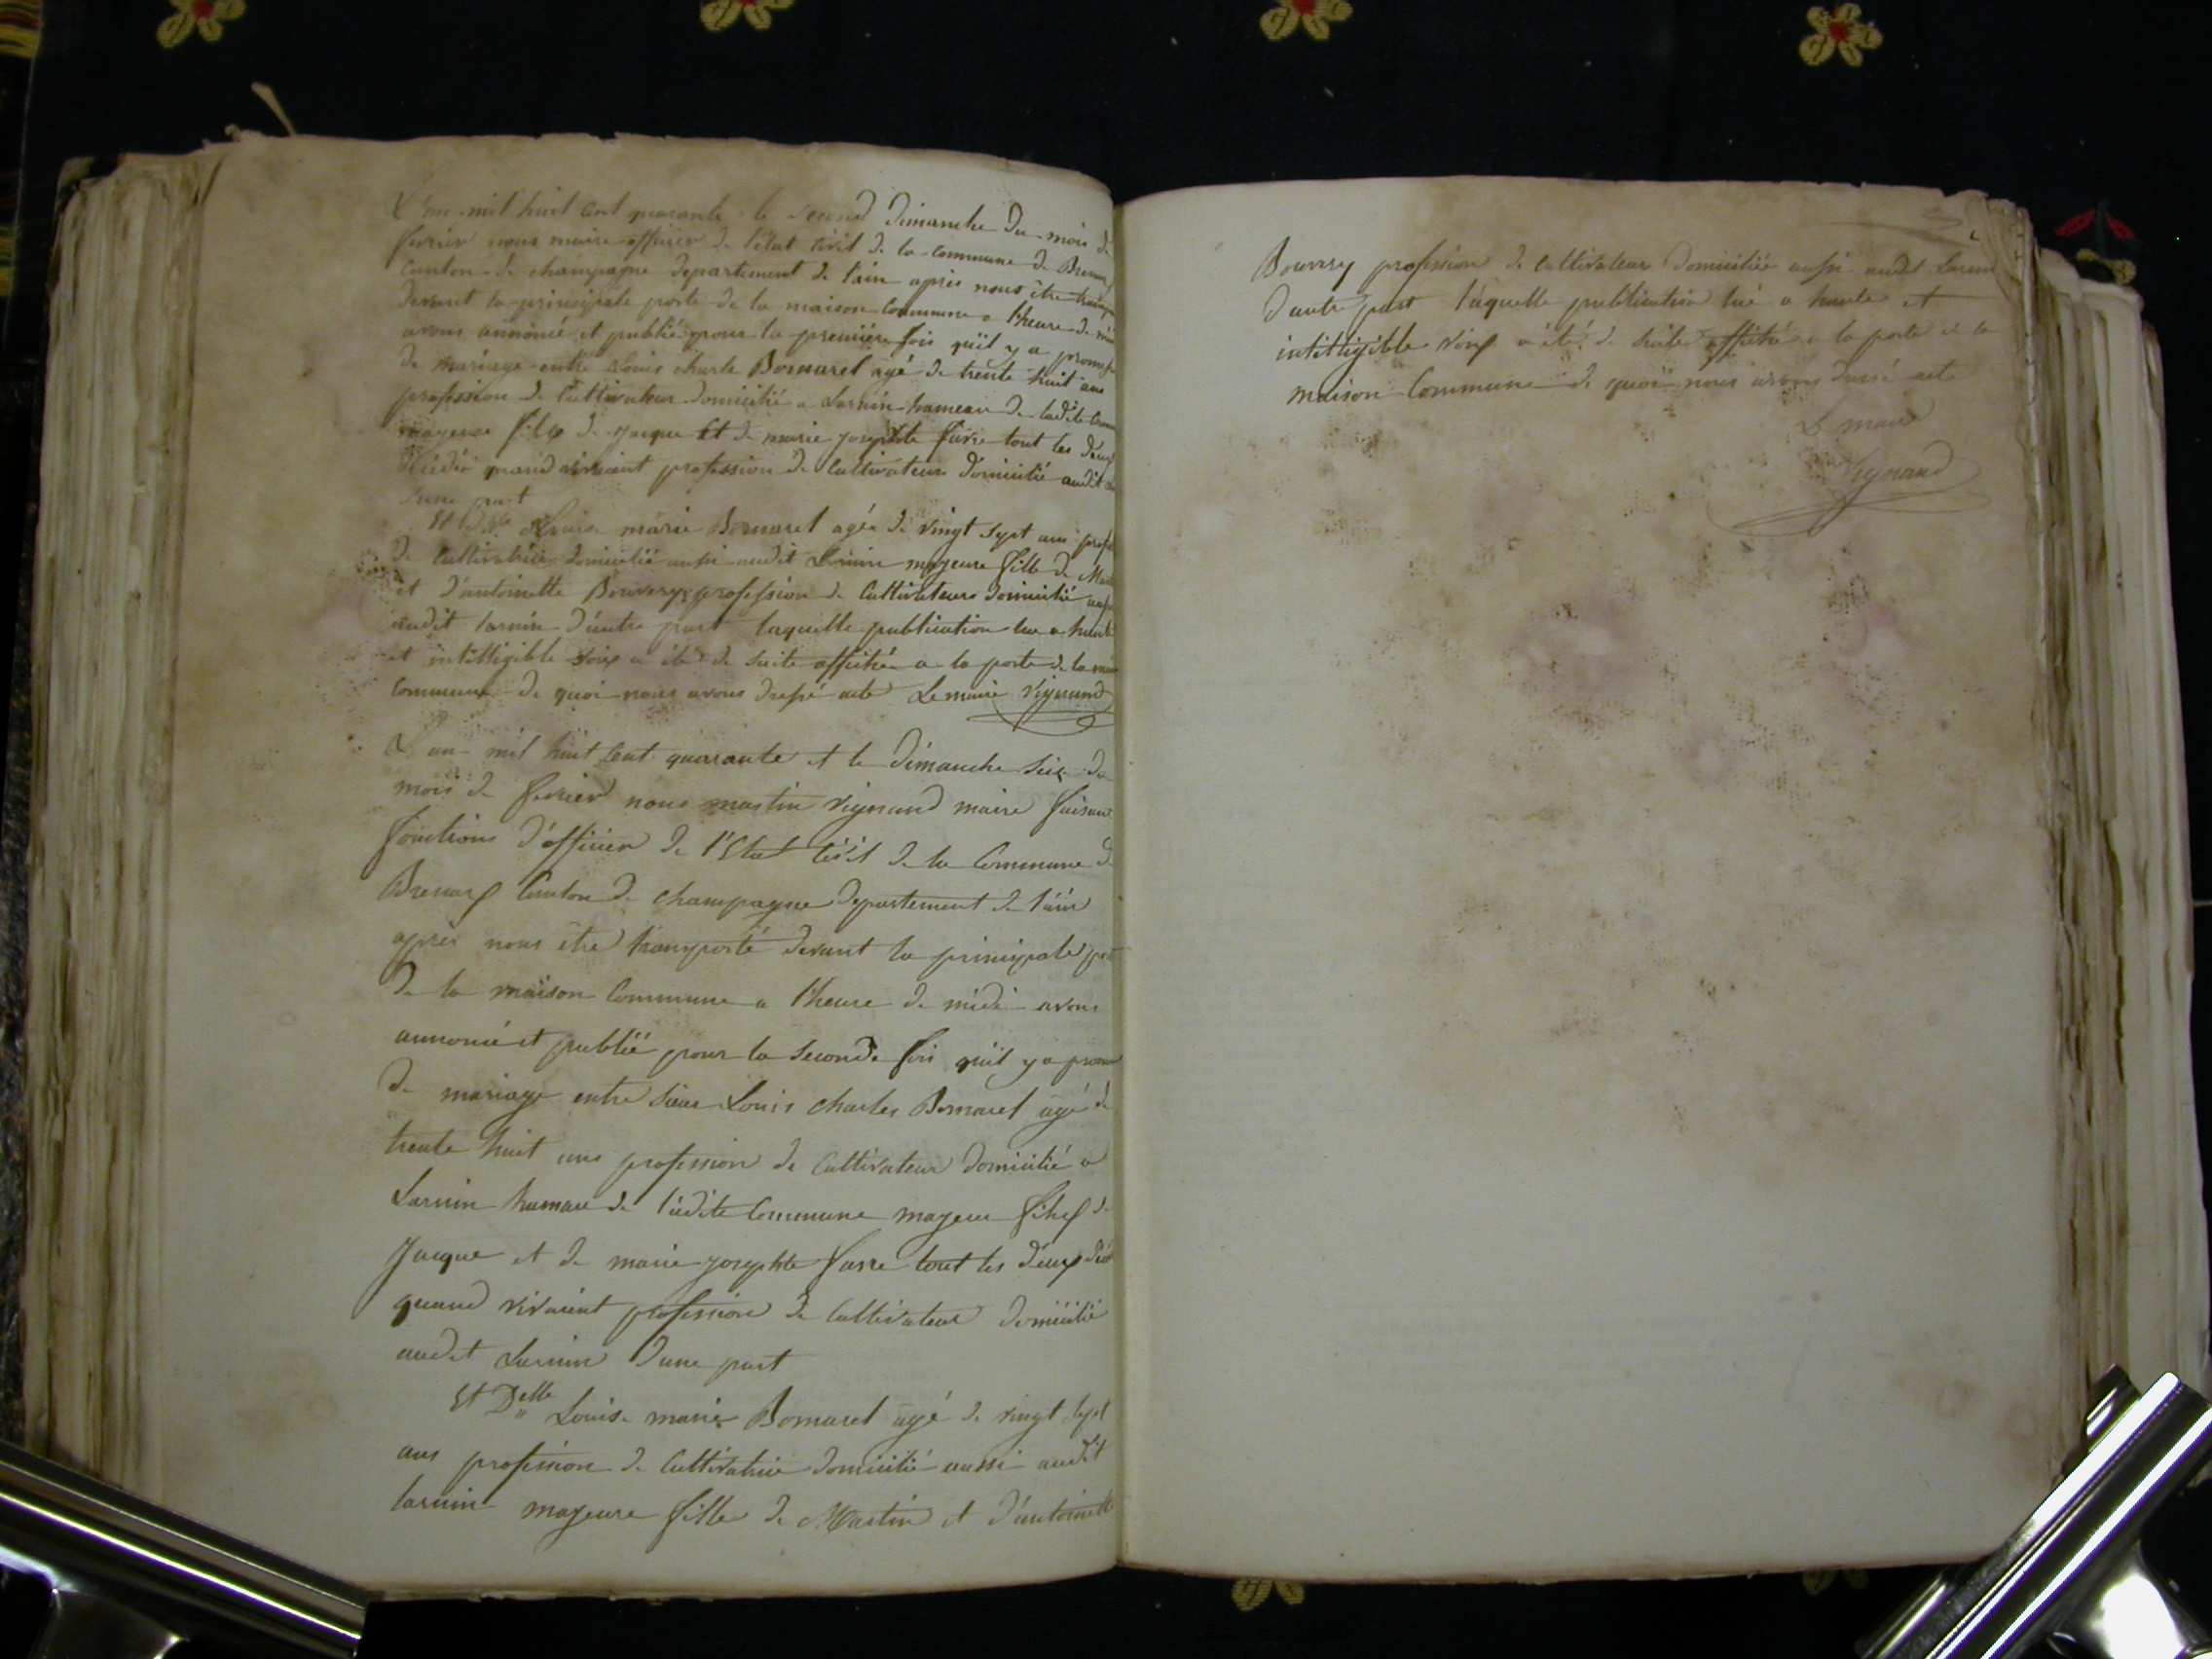 L'an mil huit cent quarante le second Dimanche du mois de
fevrier nous maire officier de l'état civil de la commune de Brenaz
Canton de champagne departement de l'ain après nous être
devant la principale porte de la maison Commune a l'heure de
avons annoncé et publié pour la premiére fois qu'il y a
de mariage entre Louis charle Bornarel agé de trente huit ans
profession de Cultivateur domicilié a Larnin hameau de ladite
majeur fils de jacque Et de marie josephte favre tout les deux
quand vivaient profession de Cultivateurs domicilié audit
d'une part
Et Louise marie Bornarel agée de vingt sept ans
de Cultivatrice domicilié aussi audit Larnin majeure fille de
et d'antoinette Bouvery profession de Cultivateurs domicilié
audit larnin d'autre part laquelle publication lue a haute
et intelligible voix a été de suite affiché a la porte de la
commune de quoi nous avons dressé acte Le maire Vignand
L'an mil huit cent quarante et le dimanche seize du
mois de fevrier nous martin Vignand maire faisant
fonctions d'officier de l'Etat civil de la Commune de
Brenaz Canton de champagne departement de l'ain
après nous être transporté devant la principale
de la maison Commune a l'heure de midi avons
annoncé et publié pour la seconde fois qu'il y a
de mariage entre sieur Louis charles Bornarel agé de
trente huit ans profession de Cultivateur domicilié a
Larnin hameau de ladite Commune majeur fils de
Jacque et de marie josephte favre tout les deux
quand vivaient profession de Cultivateur domicilié
audit Larnin d'une part
Et Delle Louise marie Bornarel agé de vingt sept
ans profession de Cultivatrice domicilié aussi audit
larnin majeure fille de Martin et d'antoinette
Bouvery profession de Cultivateur domiciliée aussi audit Larnin
d'autre part laquelle publication lué a haute et
intelligible voix a été de suite affiché a la porte de la
maison Commune de quoi nous avons dressé acte
Le maire
Vignand